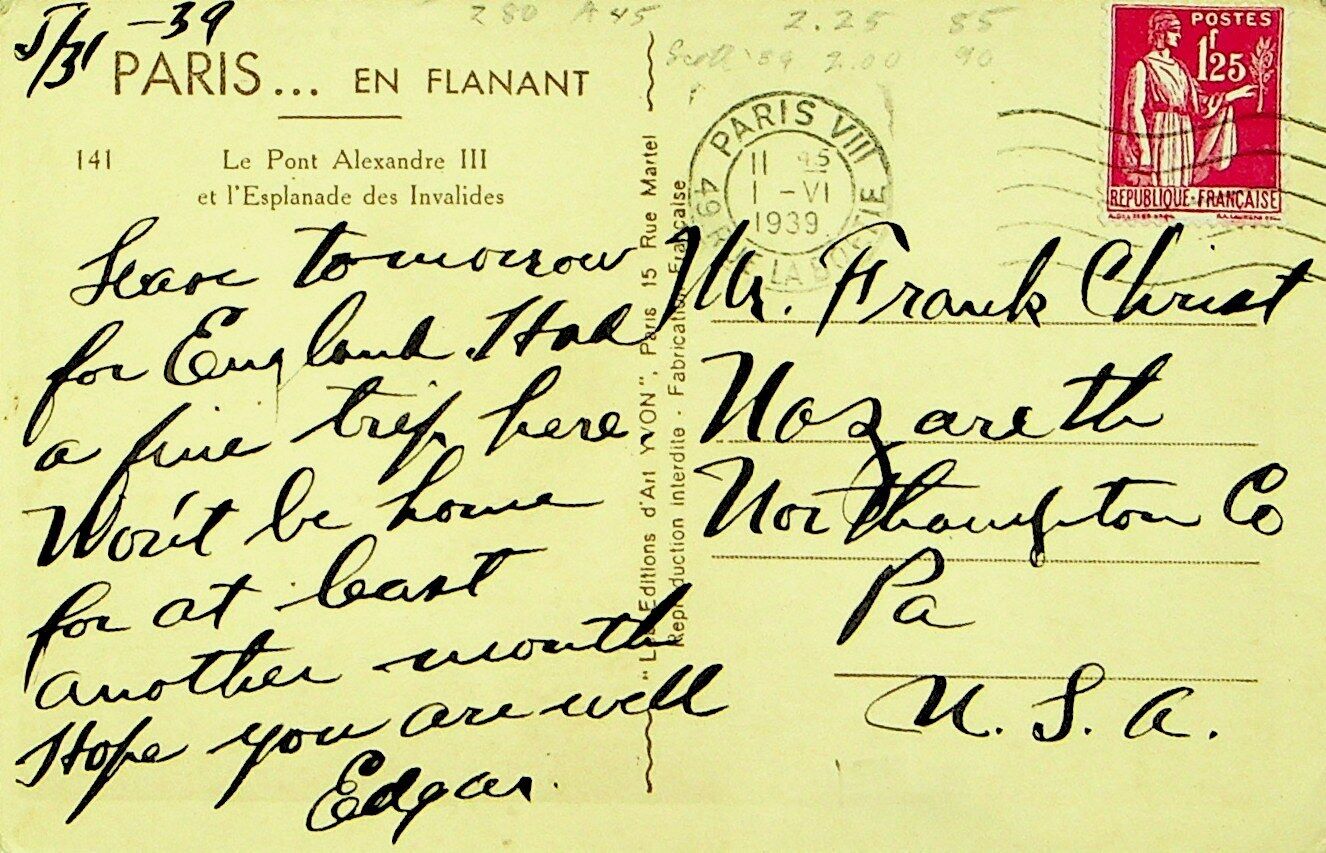 5/31 -39
PARIS... EN FLANANT
141 Le Pont Alexandre III
et l'Esplanade des Invalides
Leave tomorrow
for England. Had
a fine trip here
Won't be home
for at least
another month
Hope you are well
Edgar.
"Les Editions d'Art YVON", Paris 15 Rue Martel
Reproduction interdite - Fabrication Française
280 A45 2.25 55
Scott '89 2.00 90
PARIS VIII
11 45
1 - VI
1939
49 R. DE LA BOETIE
POSTES
1f25
REPUBLIQUE-FRANÇAISE
Mr. Frank Christ
Nazareth
Northampton Co
Pa
U. S. A.